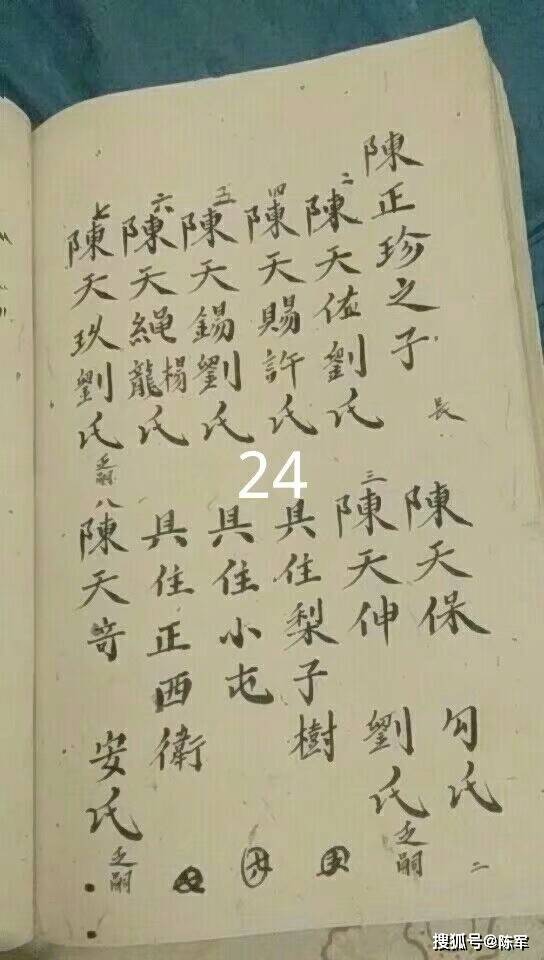 陳正珍之子
長
陳天保 勾氏
二
二
陳天佑劉氏
三
陳天伸 劉氏乏嗣
四
陳天賜許氏 具住梨子樹
五
陳天錫劉氏 具住小屯
六
陳天繩楊龍氏 具住正西衛
七
陳天玖劉氏乏嗣
八
陳天竒 安氏乏嗣
24
搜狐号@陈军